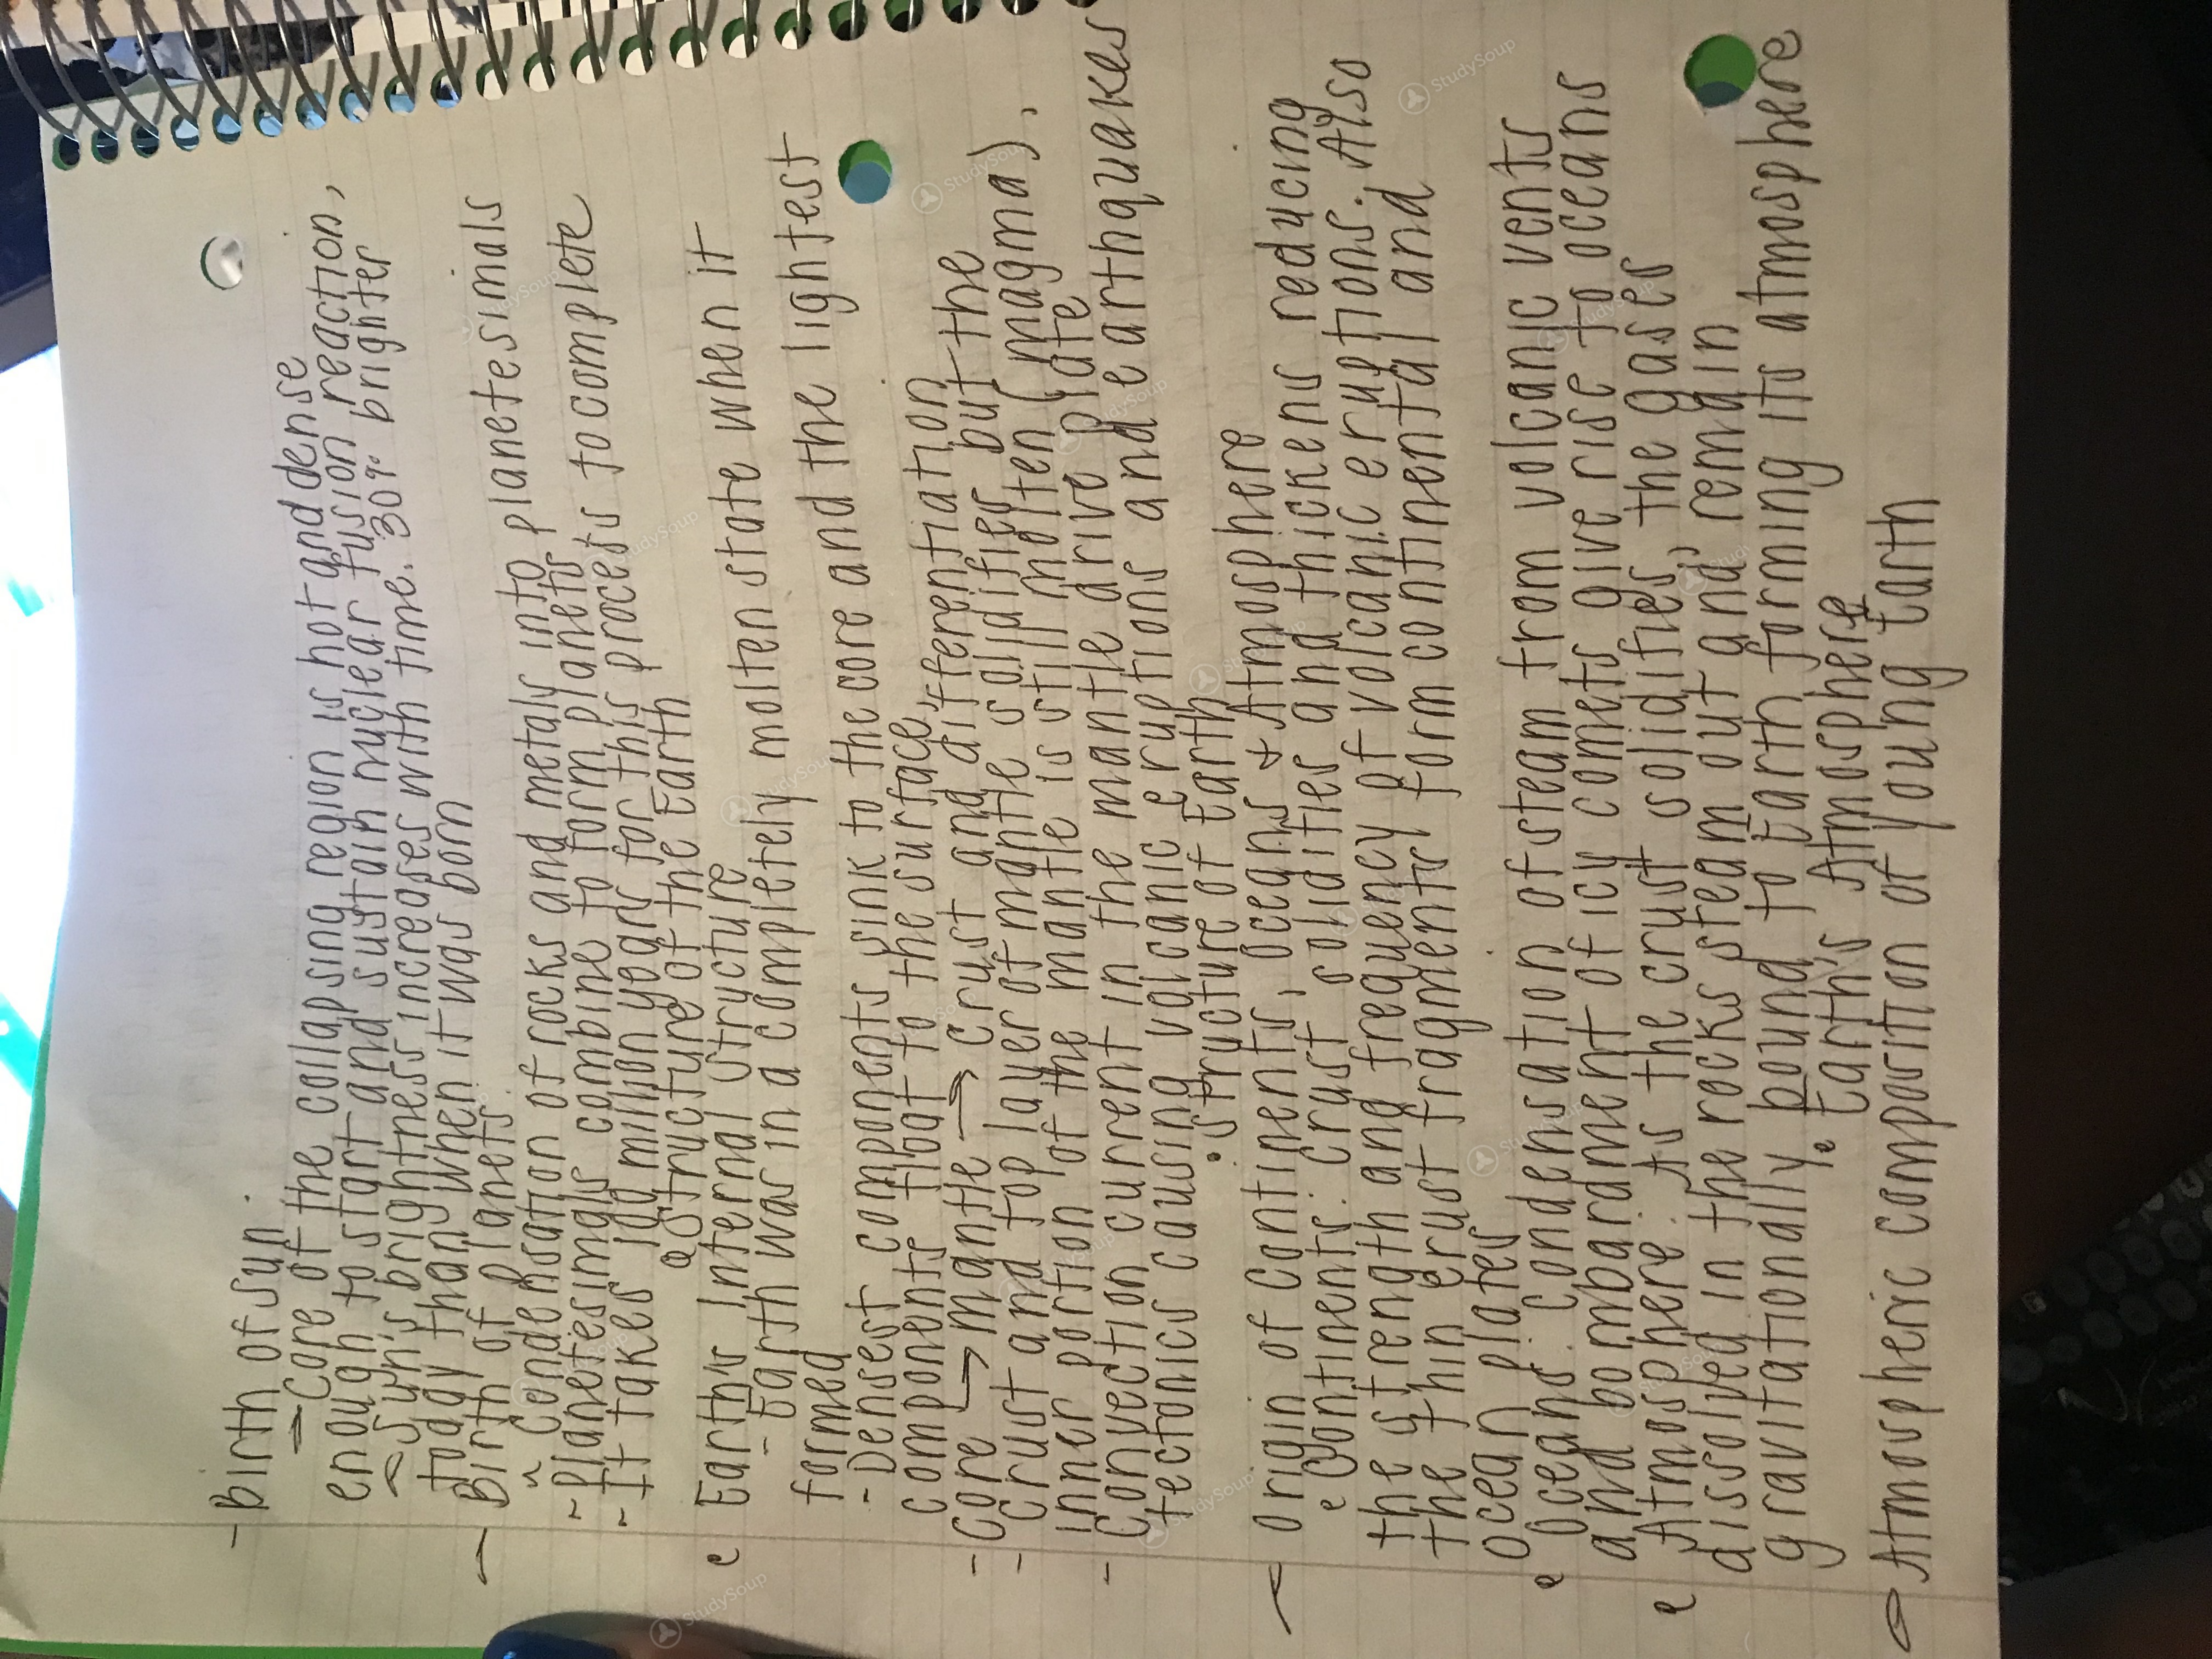 - Birth of sun.
- Core of the collapsing region is hot and dense
enough to start and sustain nuclear fusion reaction,
- Sun's brightness increases with time. 30% brighter
today than when it was born
- Birth of Planets.
- Condensation of rocks and metals into planetesimals
- Planetesimals combine to form planets
- It takes 100 million years for this process to complete
• Structure of the Earth
• Earth's Internal Structure
- Earth was in a completely molten state when it
formed
- Densest components sink to the core and the lightest
components float to the surface,
- Core → mantle → crust and differentiation
- Crust and top layer of mantle solidifies but the
inner portion of the mantle is still molten (magma).
- Convection current in the mantle drive plate
tectonics causing volcanic eruptions and earthquakes
• Structure of Earth
- Origin of Continents, Oceans + Atmosphere
• Continents: Crust solidifies and thickens reducing
the strength and frequency of volcanic eruptions. Also
the thin crust fragments form continental and
ocean plates
• Oceans: Condensation of steam from volcanic vents
and bombardment of icy comets give rise to oceans
• Atmosphere: As the crust solidifies, the gases
dissolved in the rocks steam out and remain
gravitationally bound to Earth forming its atmosphere
• Earth's Atmosphere
• Atmospheric composition of young Earth
StudySoup